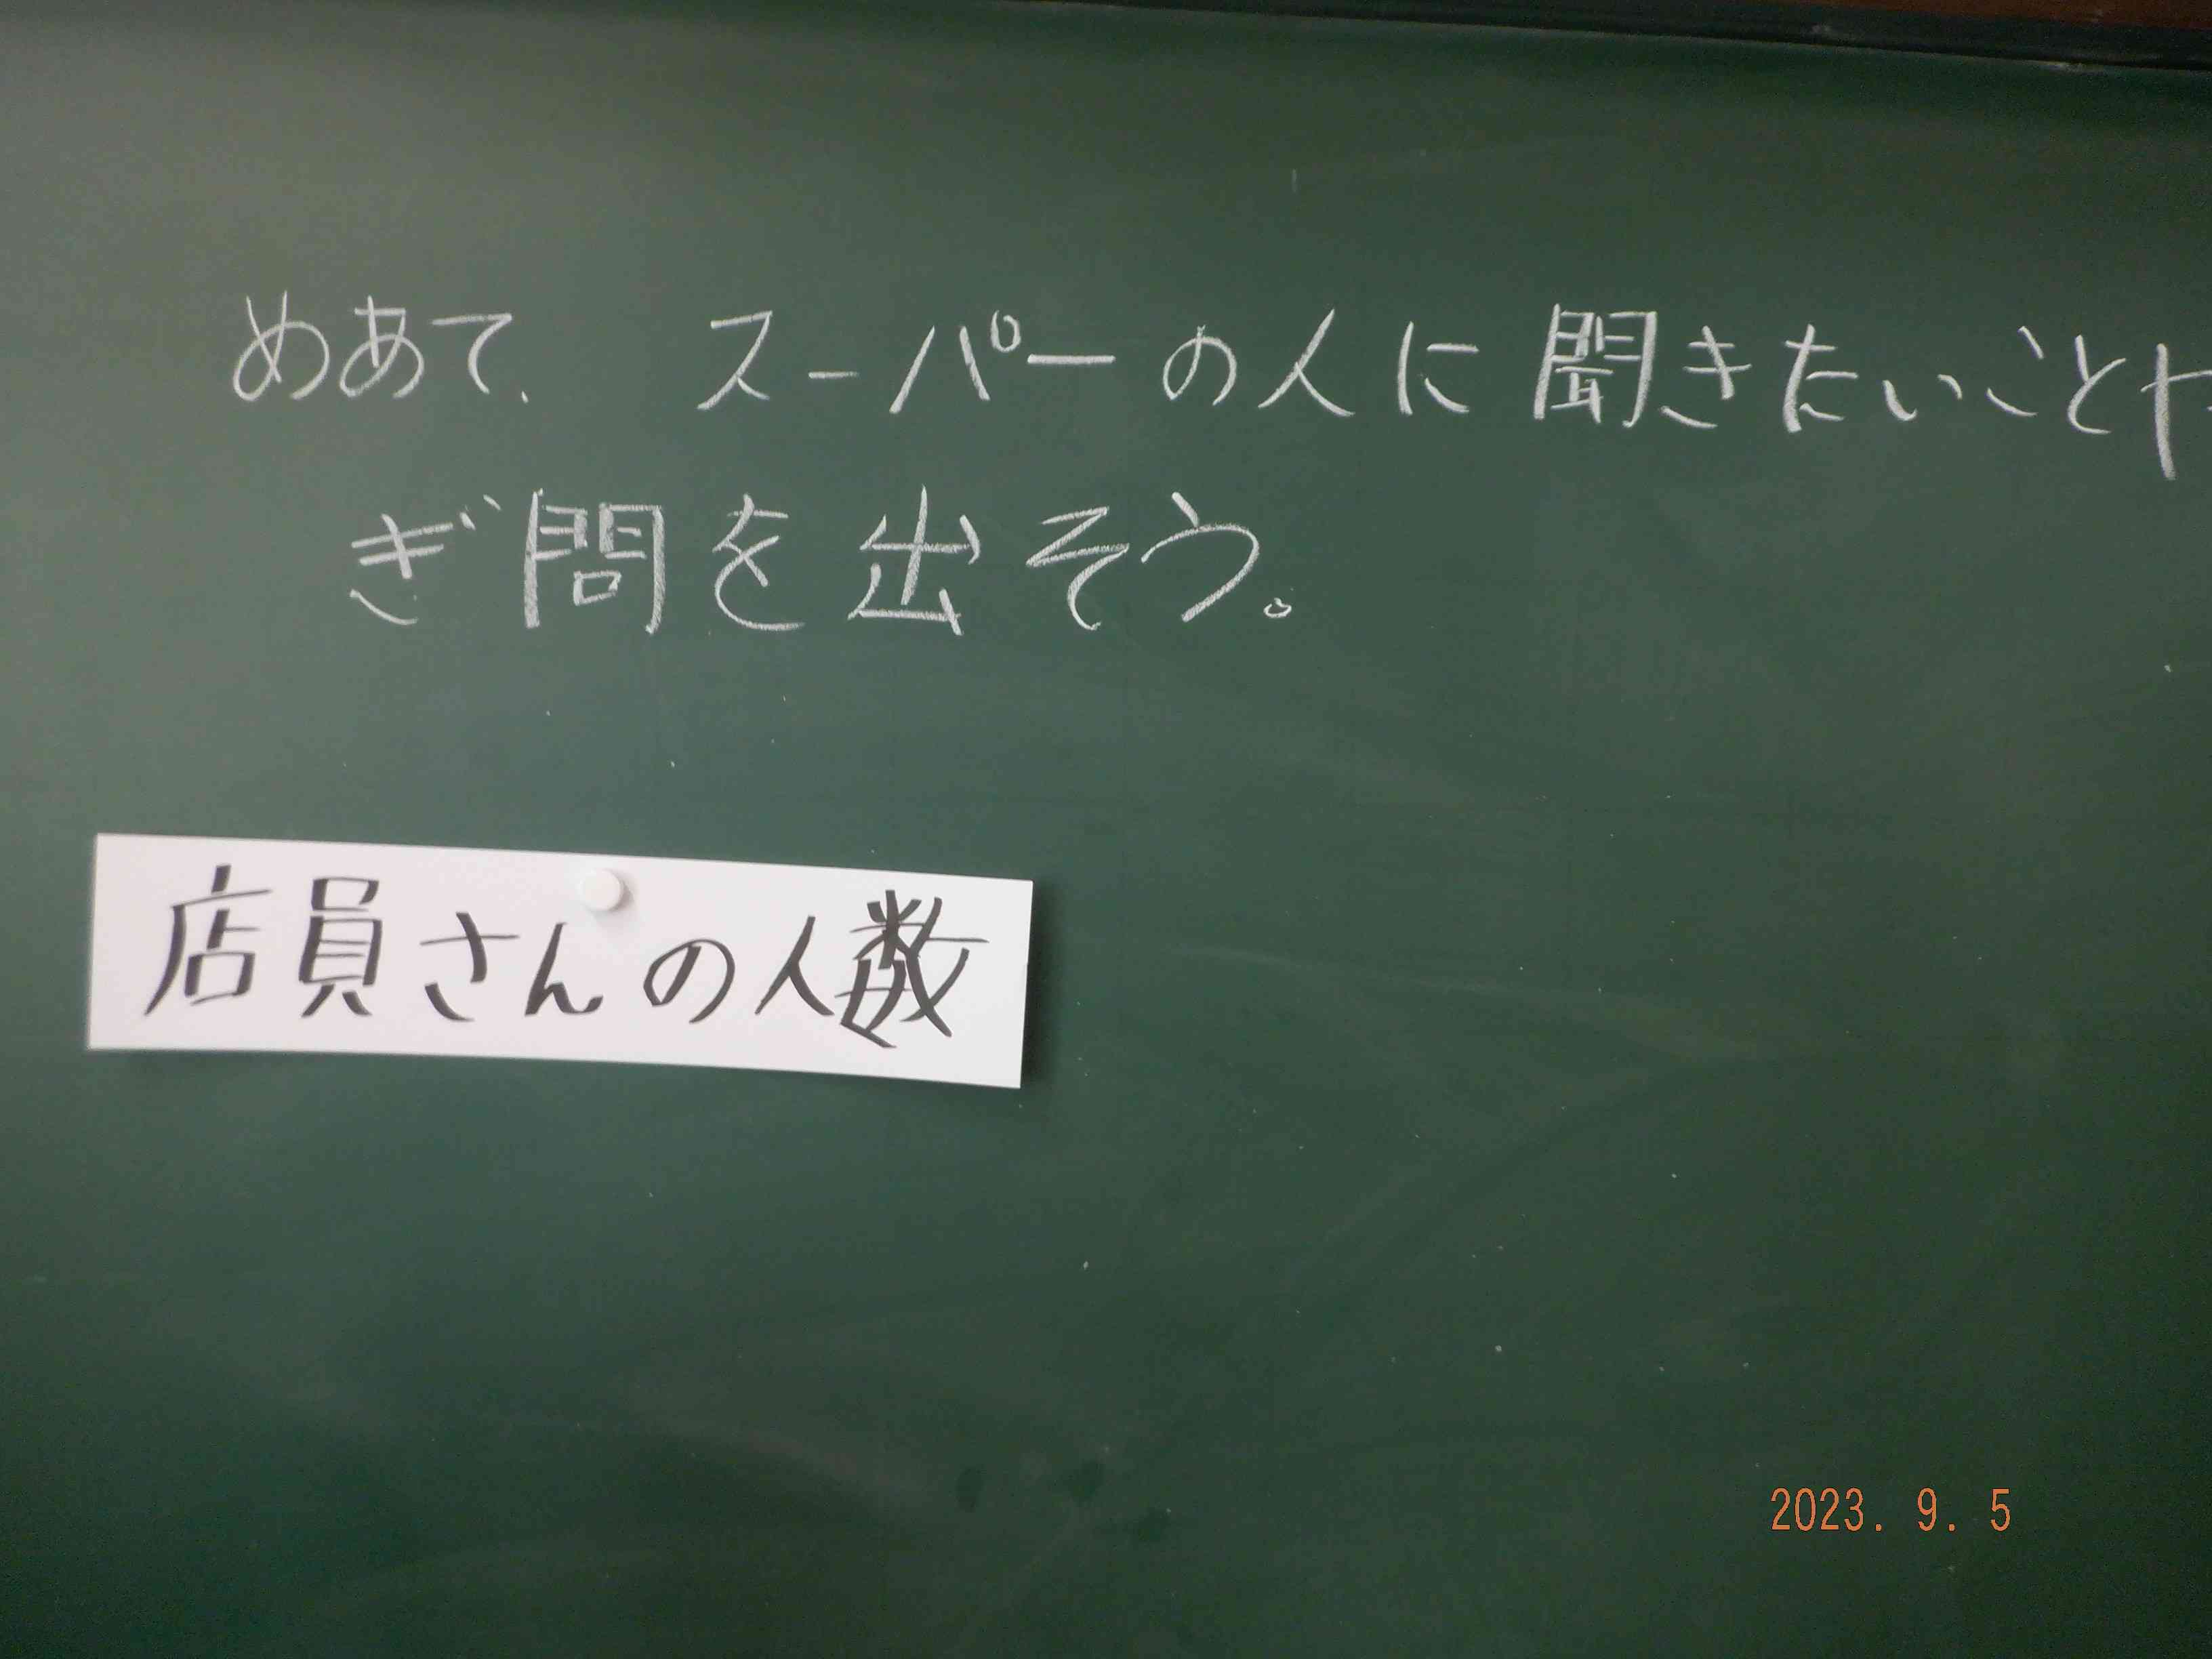 めあて、 スーパーの人に聞きたいことや
ぎ問を出そう。
店員さんの人数
2023. 9. 5